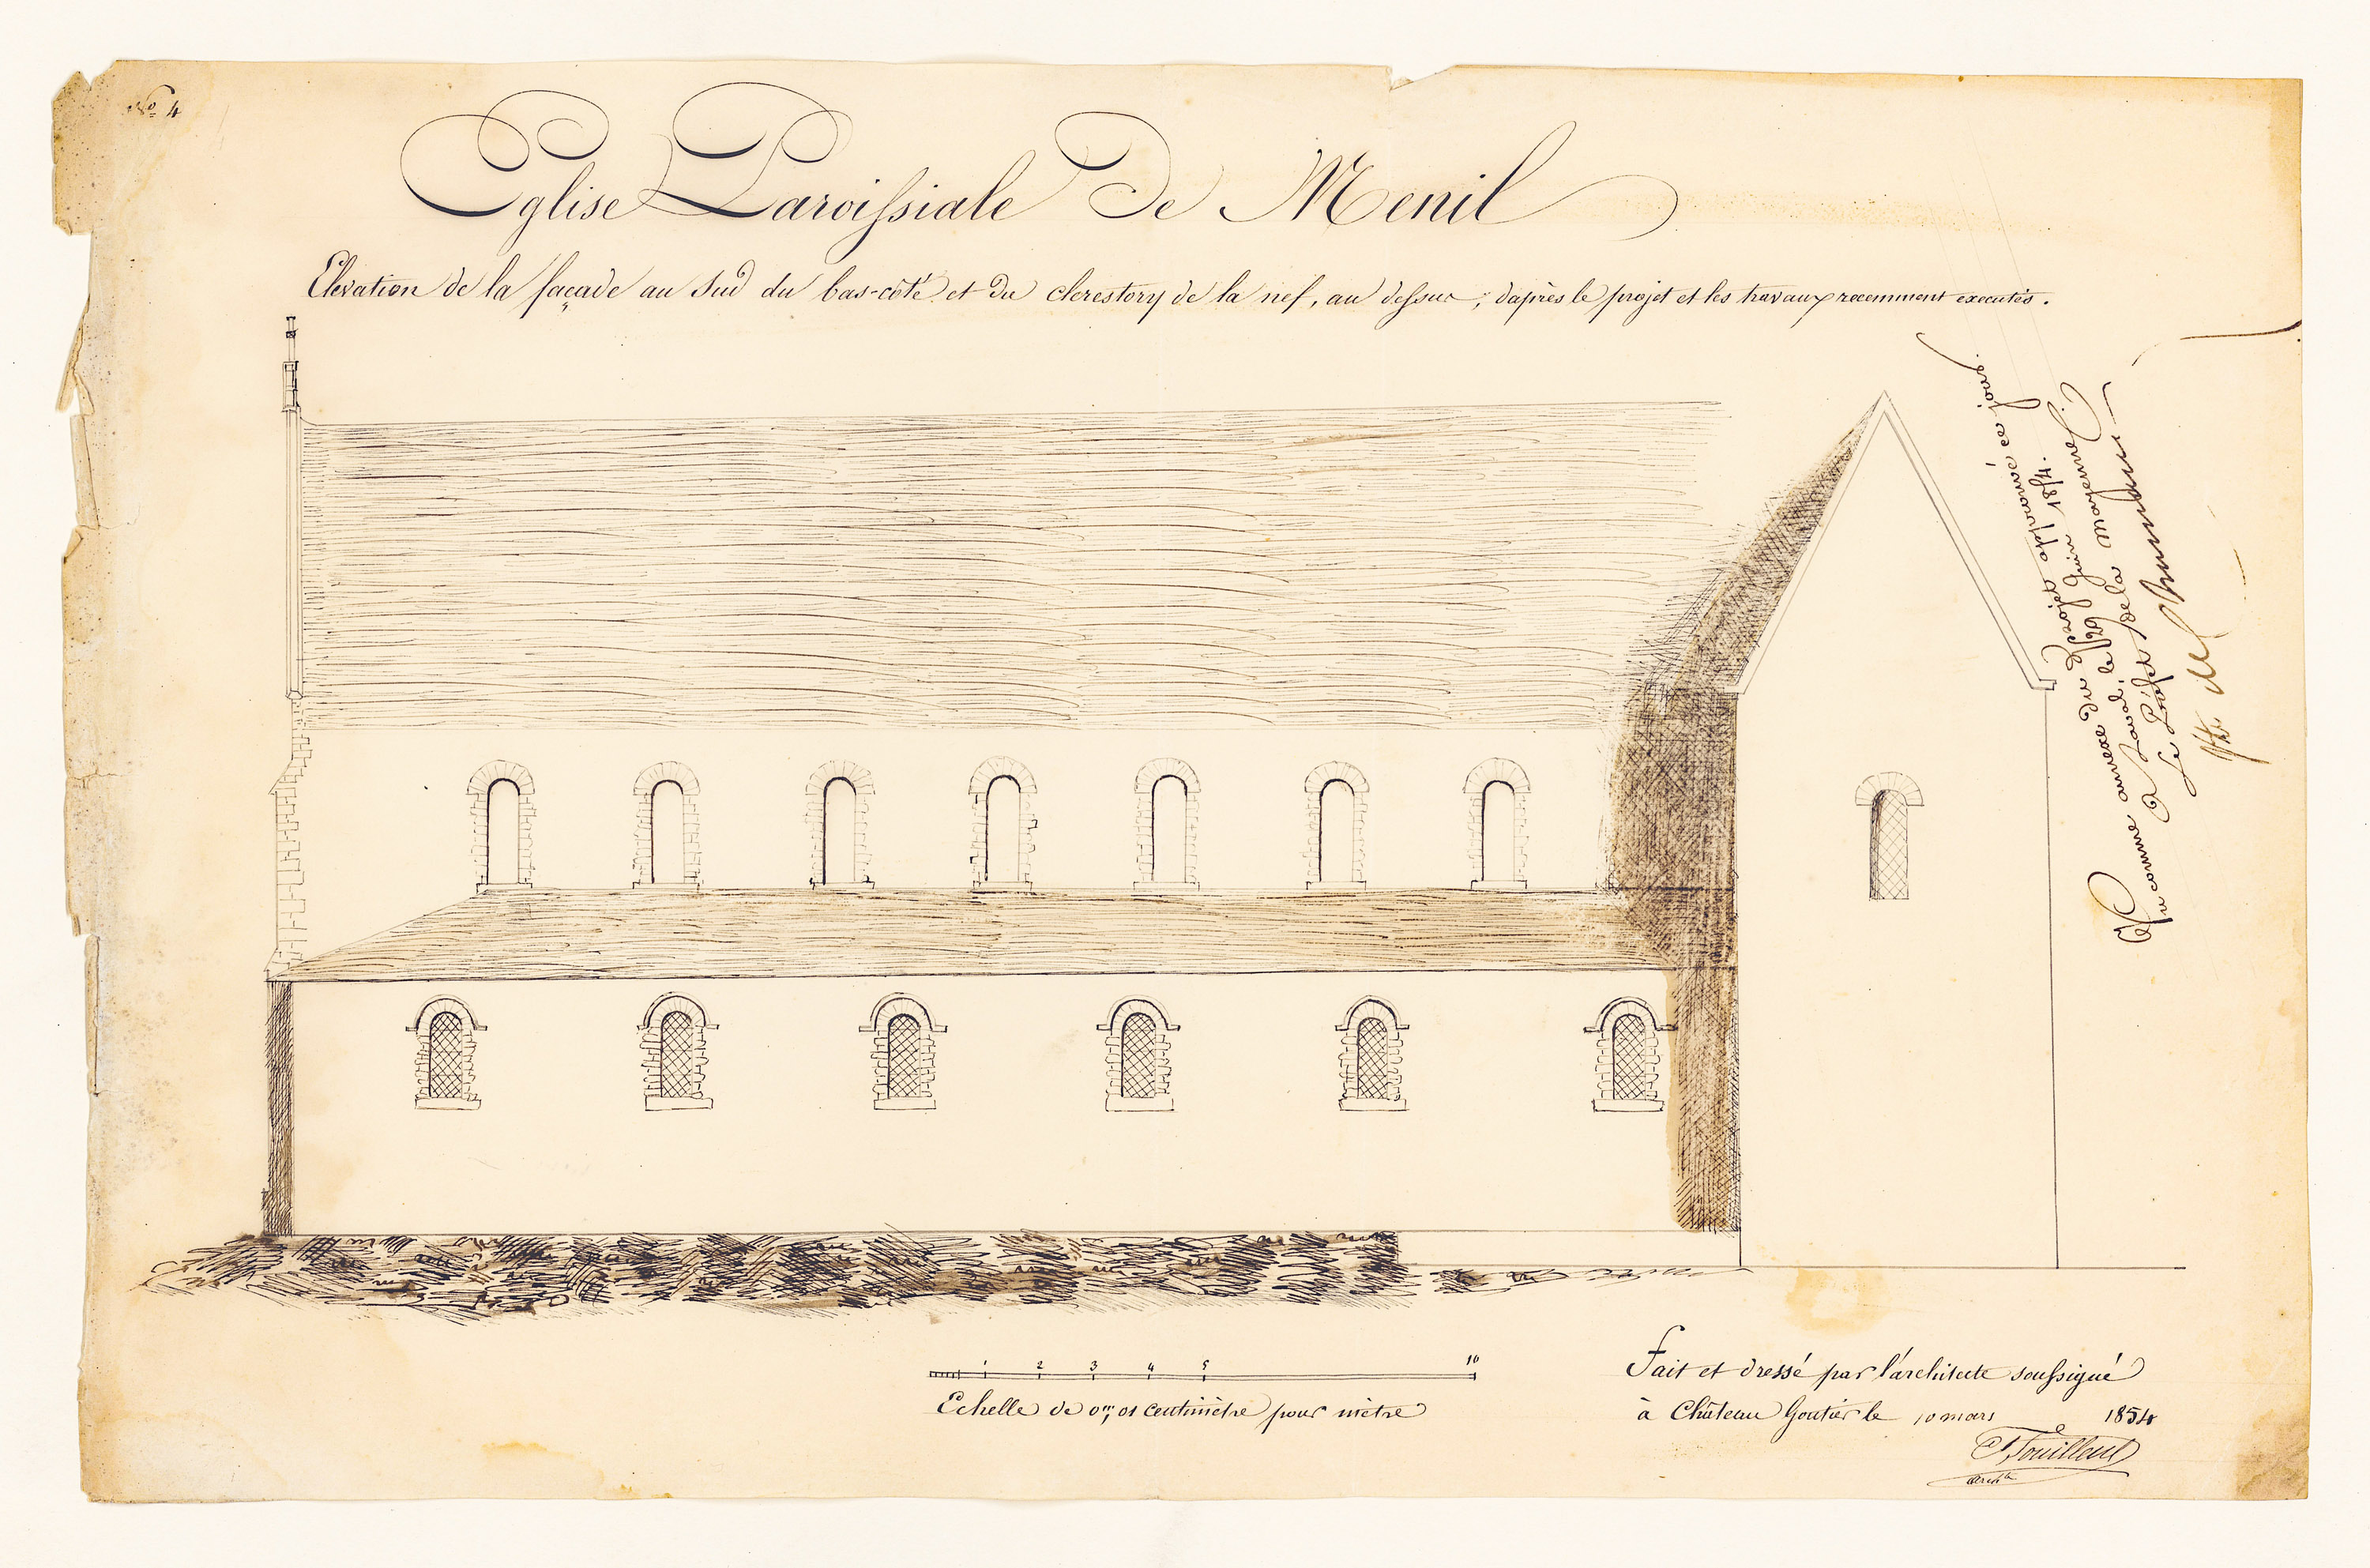 Nº 4
Eglise Paroissiale De Menil
Elevation de la façade au Sud du bas-côté et du clerestory de la nef, au dessus, d'après le projet et les travaux recemment executés.
Vu comme annexe du Projet approuvé ce jour.
A Laval, le 29 Juin 1854.
Le Préfet de la Mayenne
1 2 3 4 5 10
Echelle de 0m,01 centimètre pour mètre
Fait et dressé par l'architecte soussigné
à Château Gontier le 10 mars 1854
archte